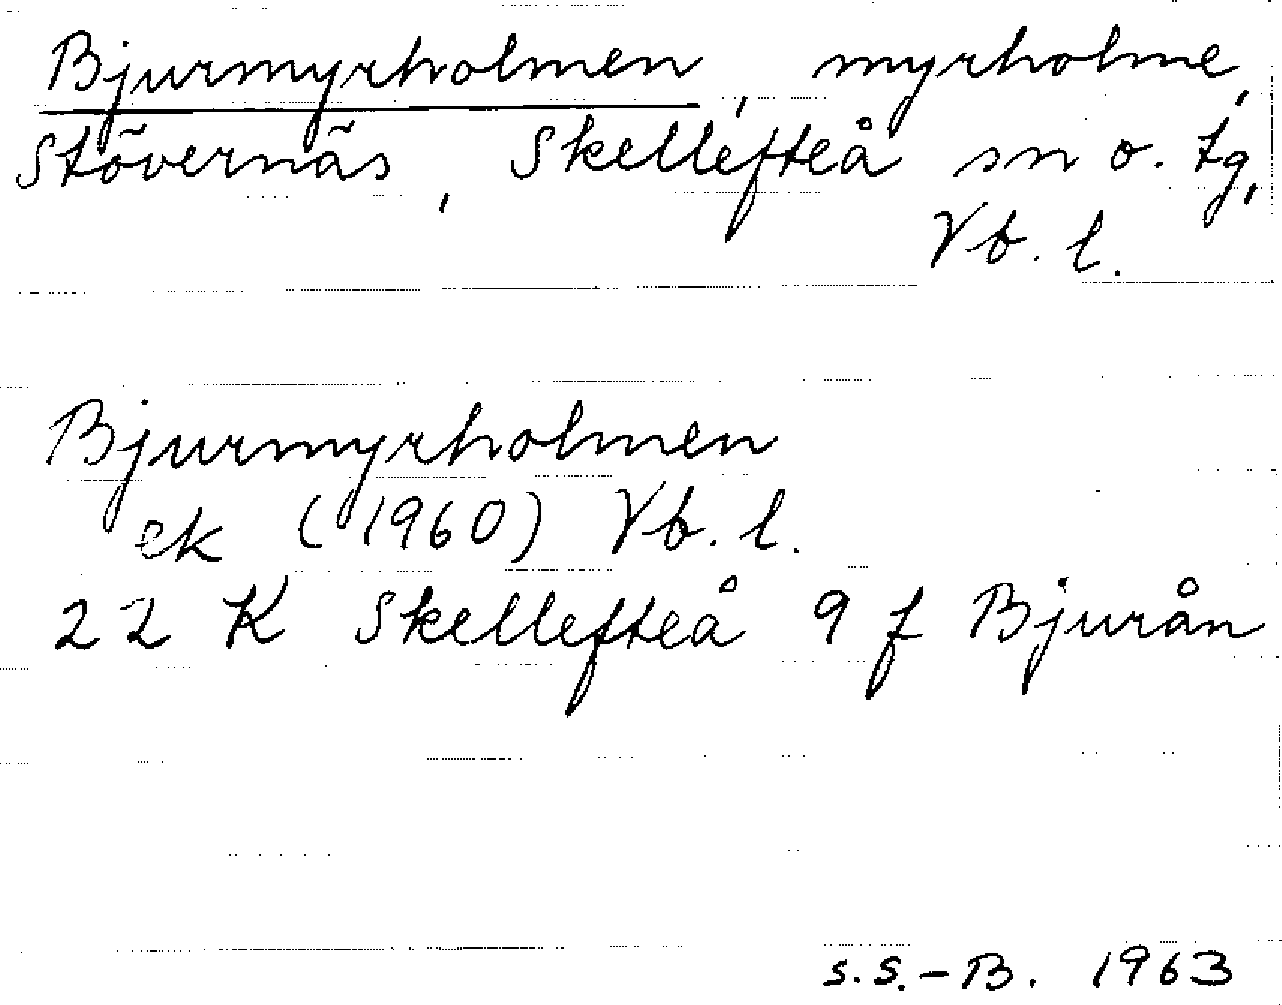 Bjurmyrholmen, myrholme,
Stövernäs, Skellefteå sn o. tg,
Vb. l.
Bjurmyrholmen
ek (1960) Vb. l.
22 K Skellefteå 9 f Bjurån
S.S.-B. 1963